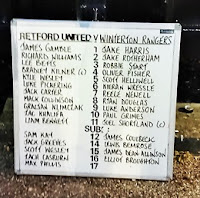 RETFORD UNITED V WINTERTON RANGERS
JAMES GAMBLE 1 JAKE HARRIS
RICHARD WILLIAMS 2 JAKE ROTHERHAM
LEE BETTS 3 ROBBIE START
BRADLEY KILNER (C) 4 OLIVER FISHER
KYLE WESLEY 5 SCOTT HELLIWELL
LUKE PICKERING 6 KIERAN WRESSLE
JACK CARTER 7 REECE NEWELL
MACK COLLINSON 8 RYAN DOUGLAS
9 LUKE ANDERSON
ZAC KHALIFA 10 PAUL GRIMES
LIAM BENNETT 11 JOEL SHORTLAND (C)
SUBS:
SAM KAY 12 JAMES
JACK GREEVES 14 JOSH
SCOTT WESLEY 15 JAMES DEAN ALLINSON
ZACH CASBURN 16 ELLIOT BROUGHTON
MAX PHILLIS 17